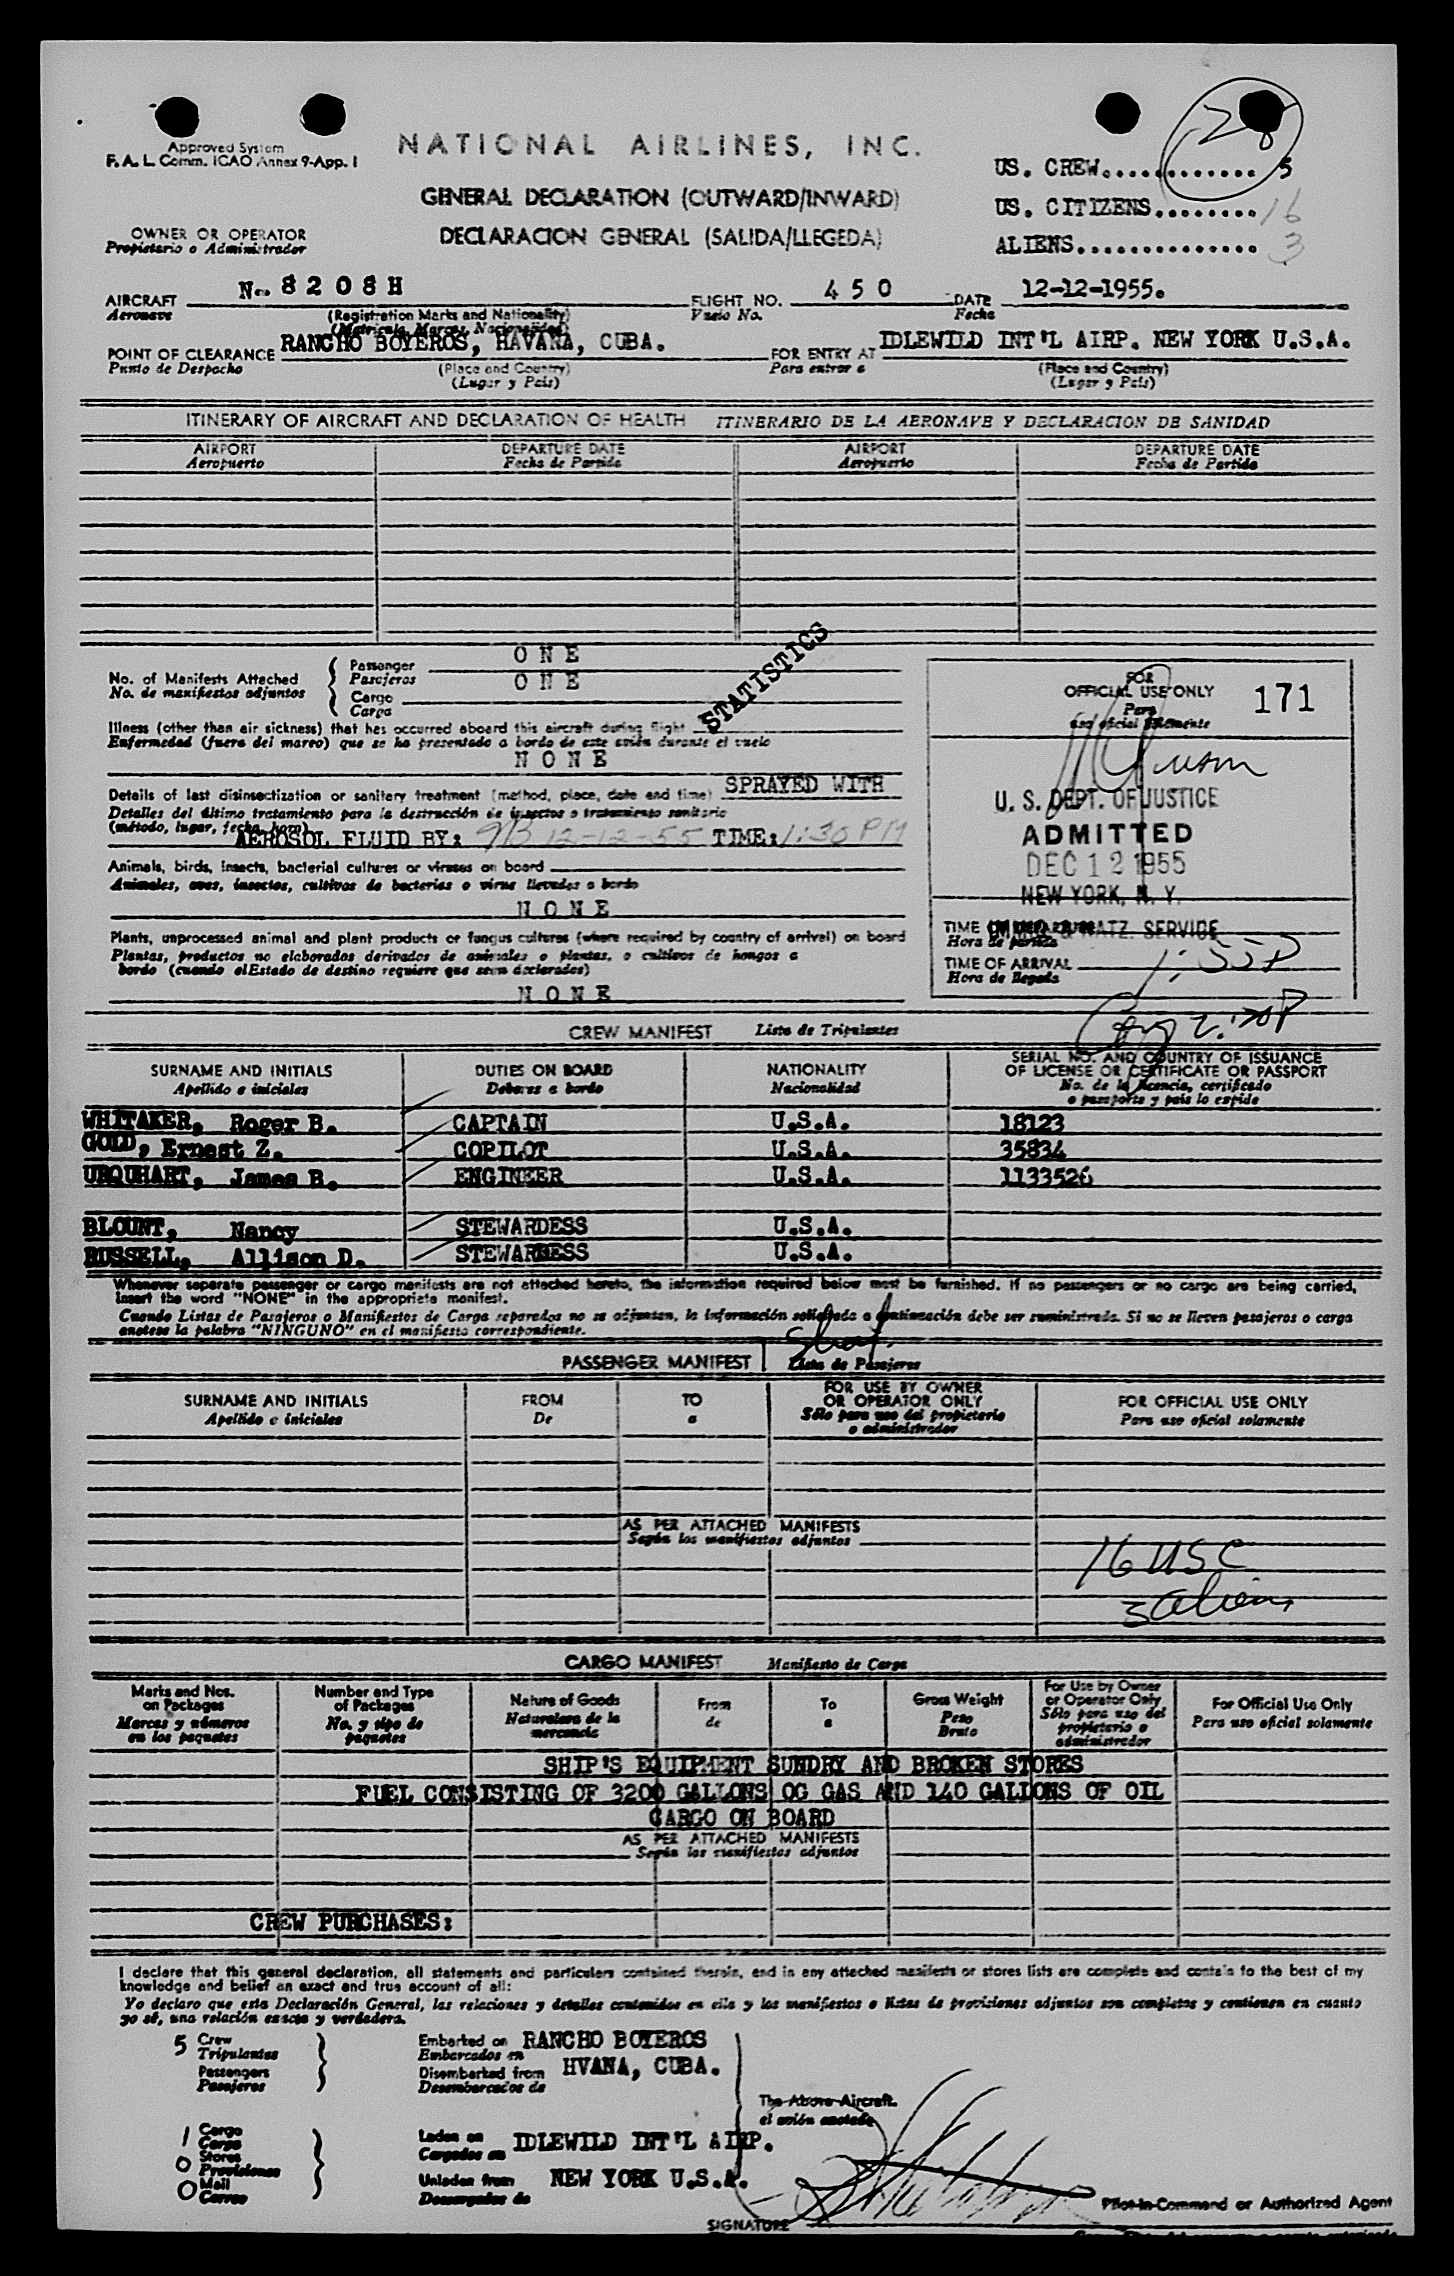 Approved System
F. A. L. Comm. ICAO Annex 9-App. 1
NATIONAL AIRLINES, INC.
GENERAL DECLARATION (OUTWARD/INWARD)
DECLARACION GENERAL (SALIDA/LLEGEDA)
OWNER OR OPERATOR
Propietario o Administrador
US. CREW............. 5
US. CITIZENS........ 16
ALIENS.............. 3
AIRCRAFT No. 8208H FLIGHT NO. 450 DATE 12-12-1955.
Aeronave (Registration Marks and Nationality) Vuelo No. Fecha
(Matricula, Marcas, Nacionalidad)
POINT OF CLEARANCE RANCHO BOYEROS, HAVANA, CUBA. FOR ENTRY AT IDLEWILD INT'L AIRP. NEW YORK U.S.A.
Punto de Despacho (Place and Country) Para entrar a (Place and Country)
(Lugar y Pais) (Lugar y Pais)
ITINERARY OF AIRCRAFT AND DECLARATION OF HEALTH ITINERARIO DE LA AERONAVE Y DECLARACION DE SANIDAD
AIRPORT DEPARTURE DATE AIRPORT DEPARTURE DATE
Aeropuerto Fecha de Partida Aeropuerto Fecha de Partida
No. of Manifests Attached Passenger ONE
No. de manifiestos adjuntos Pasajeros ONE
Cargo
Carga
STATISTICS
Illness (other than air sickness) that has occurred aboard this aircraft during flight
Enfermedad (fuera del mareo) que se ha presentado a bordo de este avión durante el vuelo
NONE
Details of last disinsectization or sanitary treatment (method, place, date and time) SPRAYED WITH
Detalles del último tratamiento para la destrucción de insectos o tratamiento sanitario
(método, lugar, fecha, hora)
AEROSOL FLUID BY: 12-12-55 TIME: 1:30 PM
Animals, birds, insects, bacterial cultures or viruses on board
Animales, aves, insectos, cultivos de bacterias o virus llevados a bordo
NONE
Plants, unprocessed animal and plant products or fungus cultures (where required by country of arrival) on board
Plantas, productos no elaborados derivados de animales o plantas, o cultivos de hongos a
bordo (cuando el Estado de destino requiere que sean declarados)
NONE
FOR
OFFICIAL USE ONLY 171
Para
uso oficial solamente
U. S. DEPT. OF JUSTICE
ADMITTED
DEC 12 1955
NEW YORK, N. Y.
IMMIG. & NATZ. SERVICE
Hora de partida
TIME OF ARRIVAL 1:55P
Hora de llegada
CREW MANIFEST Lista de Tripulantes
SURNAME AND INITIALS DUTIES ON BOARD NATIONALITY SERIAL NO. AND COUNTRY OF ISSUANCE
OF LICENSE OR CERTIFICATE OR PASSPORT
Apellido e iniciales Deberes a bordo Nacionalidad No. de la licencia, certificado
o pasaporte y pais lo expide
WHITAKER, Roger B. CAPTAIN U.S.A. 18123
GOLD, Ernest Z. COPILOT U.S.A. 35834
URQUHART, James B. ENGINEER U.S.A. 1133526
BLOUNT, Nancy STEWARDESS U.S.A.
RUSSELL, Allison D. STEWARDESS U.S.A.
Whenever separate passenger or cargo manifests are not attached hereto, the information required below must be furnished. If no passengers or no cargo are being carried,
insert the word "NONE" in the appropriate manifest.
Cuando Listas de Pasajeros o Manifiestos de Carga separados no se adjuntan, la información solicitada a continuación debe ser suministrada. Si no se lleven pasajeros o carga
anotese la palabra "NINGUNO" en el manifiesto correspondiente.
PASSENGER MANIFEST Lista de Pasajeros
SURNAME AND INITIALS FROM TO FOR USE BY OWNER
OR OPERATOR ONLY FOR OFFICIAL USE ONLY
Apellido e iniciales De a Sólo para uso del propietario
o administrador Para uso oficial solamente
AS PER ATTACHED MANIFESTS
Según los manifiestos adjuntos
16 USC
3 aliens
CARGO MANIFEST Manifiesto de Carga
Marks and Nos.
on Packages
Marcas y números
en los paquetes
Number and Type
of Packages
No. y tipo de
paquetes
Nature of Goods
Naturaleza de la
mercancia
From
de
To
a
Gross Weight
Peso
Bruto
For Use by Owner
or Operator Only
Sólo para uso del
propietario o
administrador
For Official Use Only
Para uso oficial solamente
SHIP'S EQUIPMENT SUNDRY AND BROKEN STORES
FUEL CONSISTING OF 3200 GALLONS OG GAS AND 140 GALLONS OF OIL
CARGO ON BOARD
AS PER ATTACHED MANIFESTS
Según los manifiestos adjuntos
CREW PURCHASES:
I declare that this general declaration, all statements and particulars contained therein, and in any attached manifests or stores lists are complete and contain to the best of my
knowledge and belief an exact and true account of all:
Yo declaro que esta Declaración General, las relaciones y detalles contenidos en ella y los manifiestos o listas de provisiones adjuntos son completos y contienen en cuanto
yo sé, una relación exacta y verdadera.
5 Crew Embarked on RANCHO BOYEROS
Tripulantes Embarcados en
Passengers Disembarked from HVANA, CUBA.
Pasajeros Desembarcados de
The Above Aircraft.
el avión anotado
1 Cargo
Carga
0 Stores
Provisiones
0 Mail
Correo
Laden on IDLEWILD INT'L AIRP.
Cargados en
Unladen from NEW YORK U.S.A.
Descargados de
Pilot-in-Command or Authorized Agent
SIGNATURE